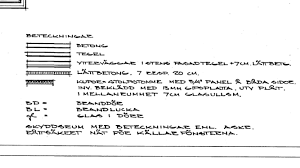 BETECKNINGAR
BETONG
TEGEL
YTTERVÄGGAR 1 STENS FASADTEGEL + 7CM. LÄTTBETG.
LÄTTBETONG. 7 RESP 20 CM.
STOLPSTOMME MED 3/4" PANEL Å BÅDA SIDOR.
INV. BEKLÄDD MED 13MM GIPSPLATTA, UTV. PLÅT.
I MELLANRUMMET 7CM GLASULLSM.
BD = BRANDDÖRR
BL = BRANDLUCKA
= GLAS I DÖRR
SKYDDSRUM MED BETECKNINGAR ENL.
NÄT FÖR KÄLLARFÖNSTERNA.